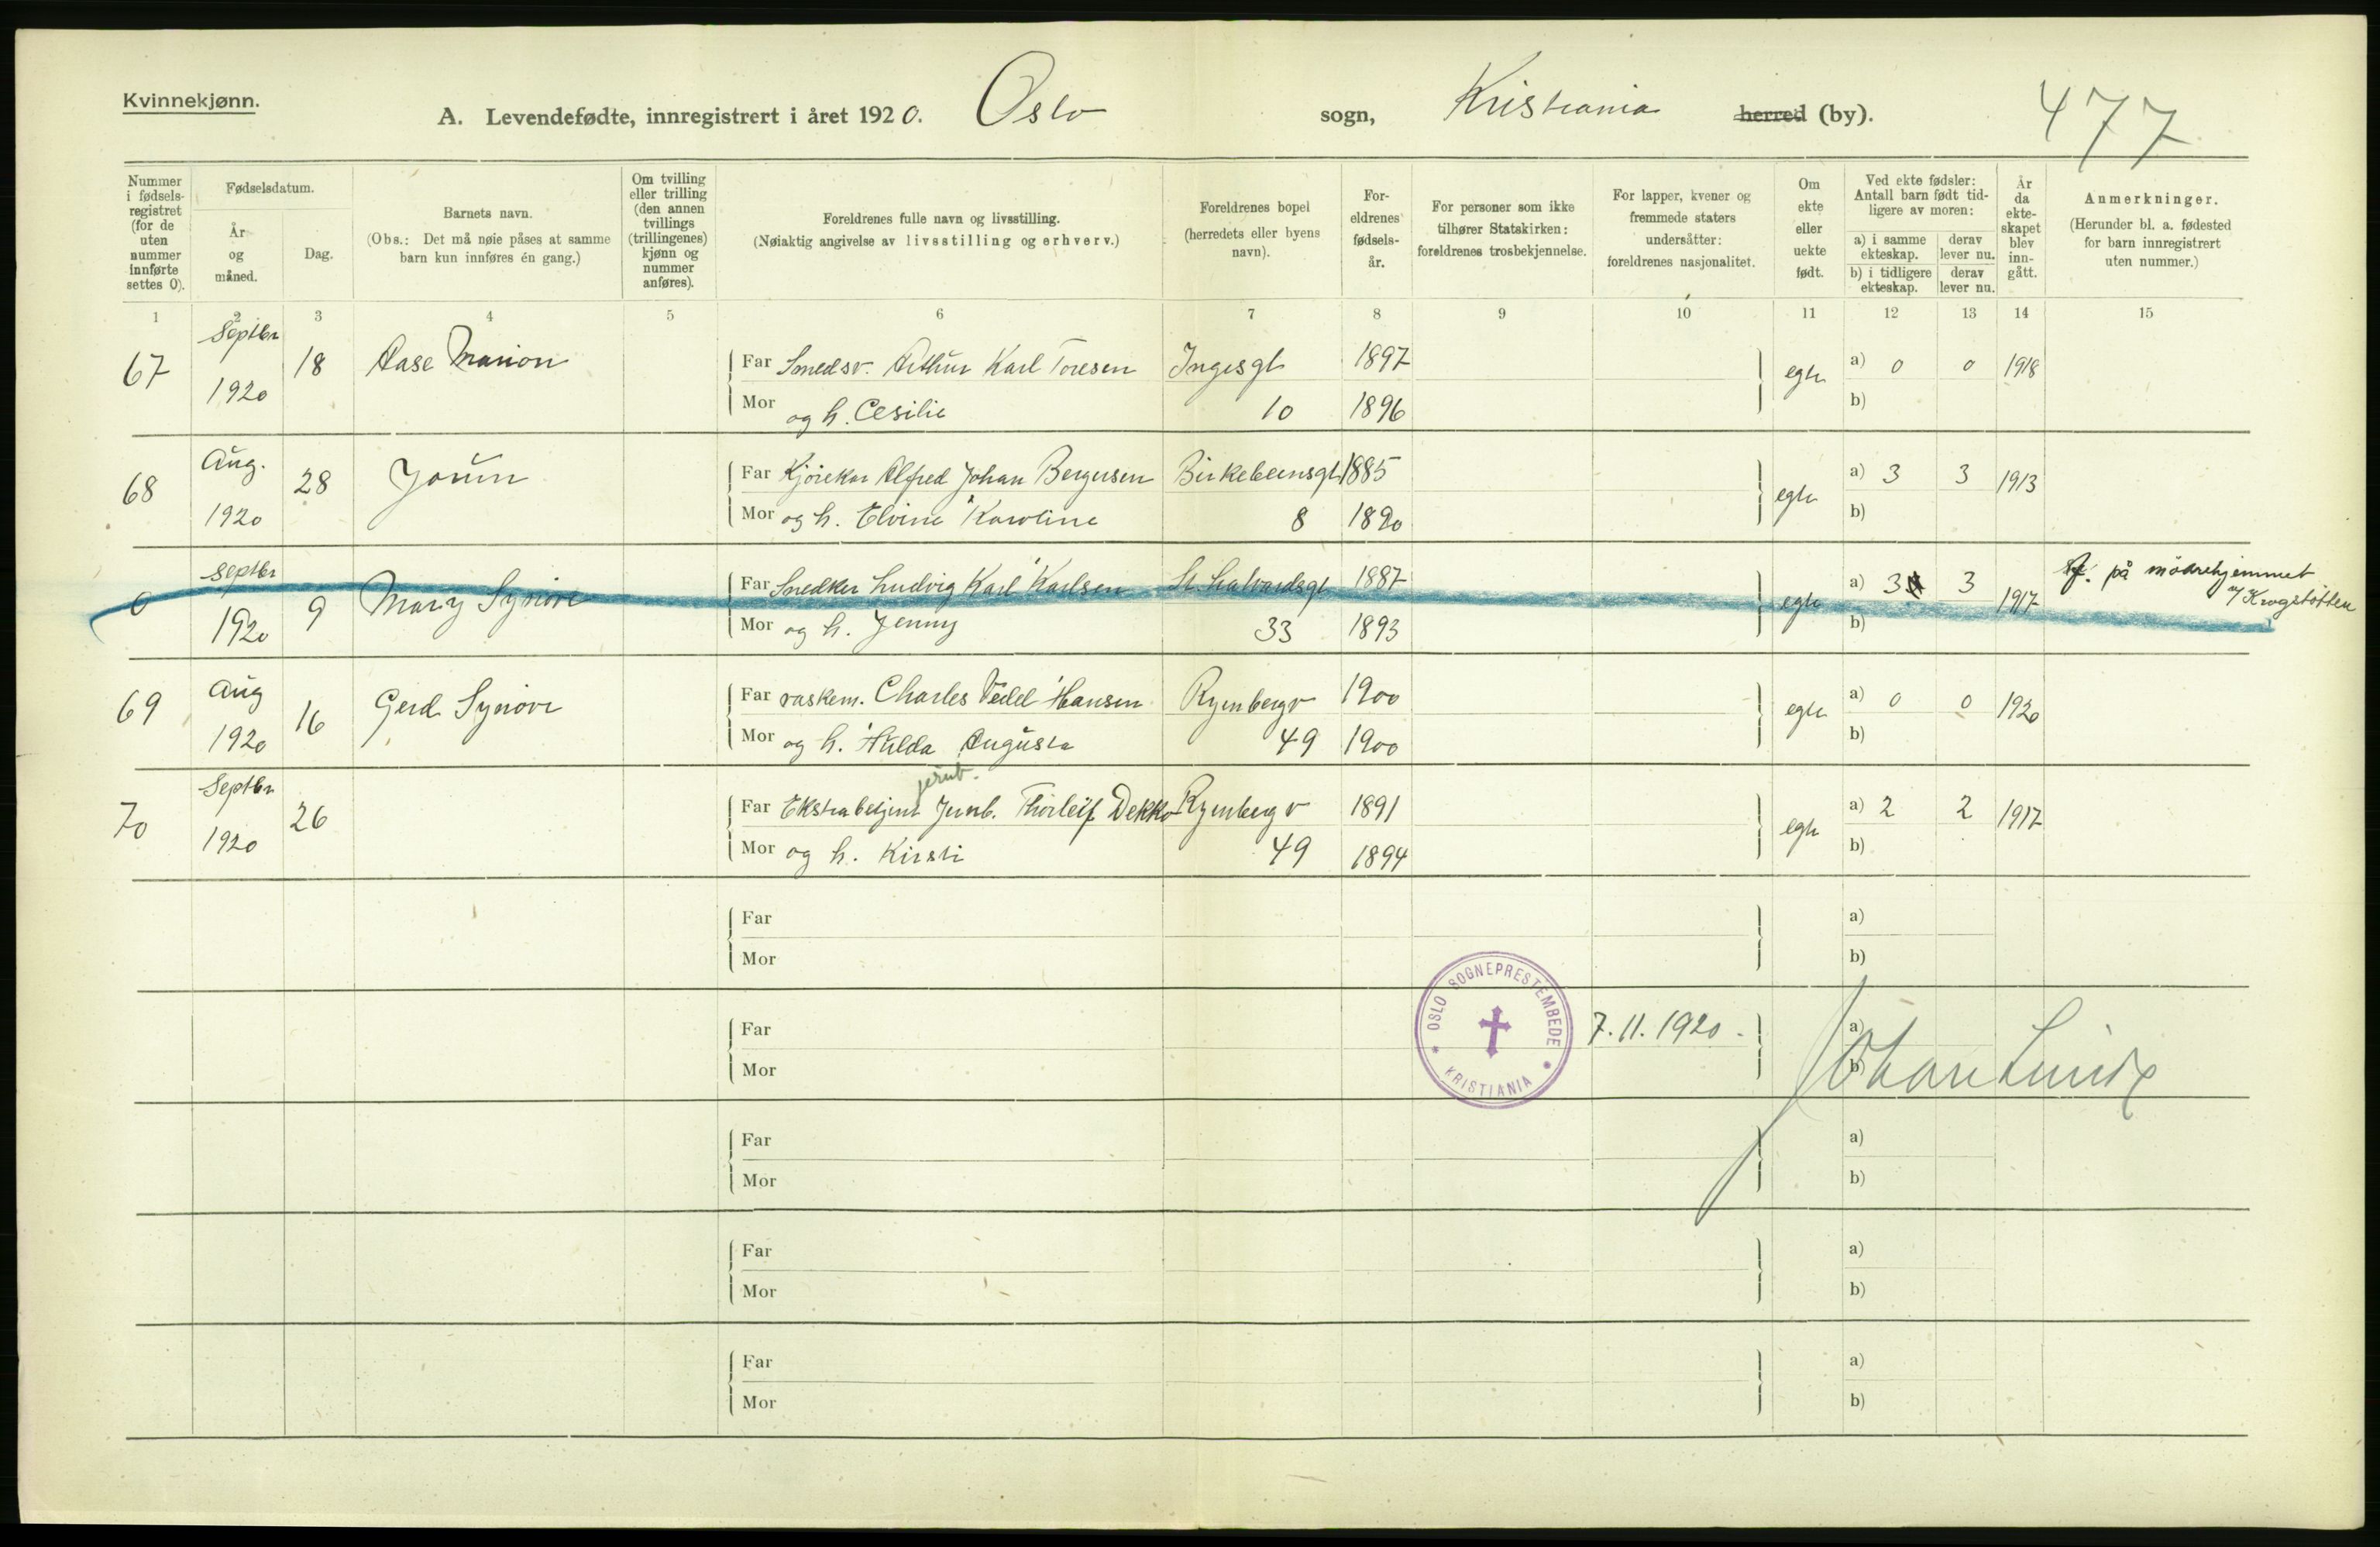 Kvinnekjønn.
A. Levendefødte, innregistrert i året 1920. Oslo sogn, Kristiania herred (by). 477
Nummer i fødsels-registret (for de uten nummer innførte settes 0).
Fødselsdatum.
År og måned.
Dag.
Barnets navn.
(Obs.: Det må nøie påses at samme barn kun innføres én gang.)
Om tvilling eller trilling (den annen tvillings (trillingenes) kjønn og nummer anføres).
Foreldrenes fulle navn og livsstilling.
(Nøiaktig angivelse av livsstilling og erhverv.)
Foreldrenes bopel (herredets eller byens navn).
For-eldrenes fødsels-år.
For personer som ikke tilhører Statskirken: foreldrenes trosbekjennelse.
For lapper, kvener og fremmede staters undersåtter: foreldrenes nasjonalitet.
Om ekte eller uekte født.
Ved ekte fødsler: Antall barn født tid-ligere av moren:
a) i samme ekteskap.
derav lever nu.
b) i tidligere ekteskap.
derav lever nu.
År da ekte-skapet blev inn-gått.
Anmerkninger.
(Herunder bl. a. fødested for barn innregistrert uten nummer.)
1 2 3 4 5 6 7 8 9 10 11 12 13 14 15
67 Septbr 1920 18 Aase Marion
Far Smedsv. Arthur Karl Toresen Ingesgt 1897 egte a) 0 0 1918
Mor og h. Cesilie 10 1896 b)
68 Aug. 1920 28 Jorun
Far Kjørekar Alfred Johan Bergersen Birkebeensgt 1885 egte a) 3 3 1913
Mor og h. Elvine Karoline 8 1890 b)
0 Septbr 1920 9 Mary Synøve
Far Snedker Ludvig Karl Karlsen St. Halvardsgt 1887 egte a) 3 3 1917 på mödrehjemmet v/ Krogstötten
Mor og h. Jenny 33 1893 b)
69 Aug 1920 16 Gerd Synøve
Far vaskem. Charles Vedel Hansen Ryenbergv 1900 egte a) 0 0 1920
Mor og h. Hulda Augusta 49 1900 b)
jernb.
70 Septbr 1920 26
Far Ekstrabetjent Jernb. Thorleif Dekko Ryenbergv 1891 egte a) 2 2 1917
Mor og h. Kirsti 49 1894 b)
Far a)
Mor b)
OSLO SOGNEPRESTEMBEDE * KRISTIANIA *
Far 7.11.1920. a) Johan Lunde
Mor b)
Far a)
Mor b)
Far a)
Mor b)
Far a)
Mor b)